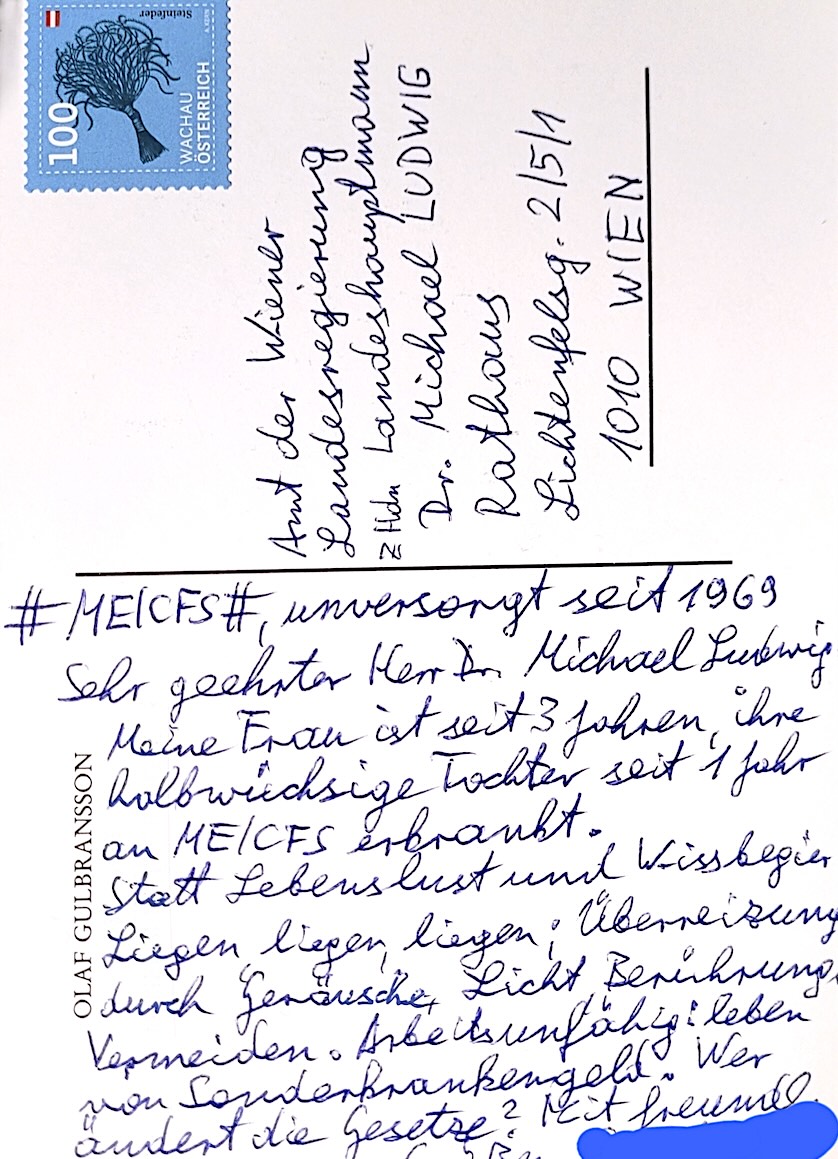 Steinfeder
A. KERN
100
WACHAU
ÖSTERREICH
Amt der Wiener
Landesregierung
z Hdn Landeshauptmann
Dr. Michael LUDWIG
Rathaus
Lichtenfelsg. 2/5/1
1010 WIEN
OLAF GULBRANSSON
#ME/CFS#, unversorgt seit 1969
Sehr geehrter Herr Dr. Michael Ludwig
Meine Frau ist seit 3 Jahren, ihre
halbwüchsige Tochter seit 1 Jahr
an ME/CFS erkrankt.
Statt Lebenslust und Wissbegier
Liegen, liegen, liegen; Überreizung
durch Geräusche, Licht, Berührung,
Vermeiden. Arbeitsunfähig: leben
von Sonderkrankengeld. Wer
ändert die Gesetze? Mit freundl.